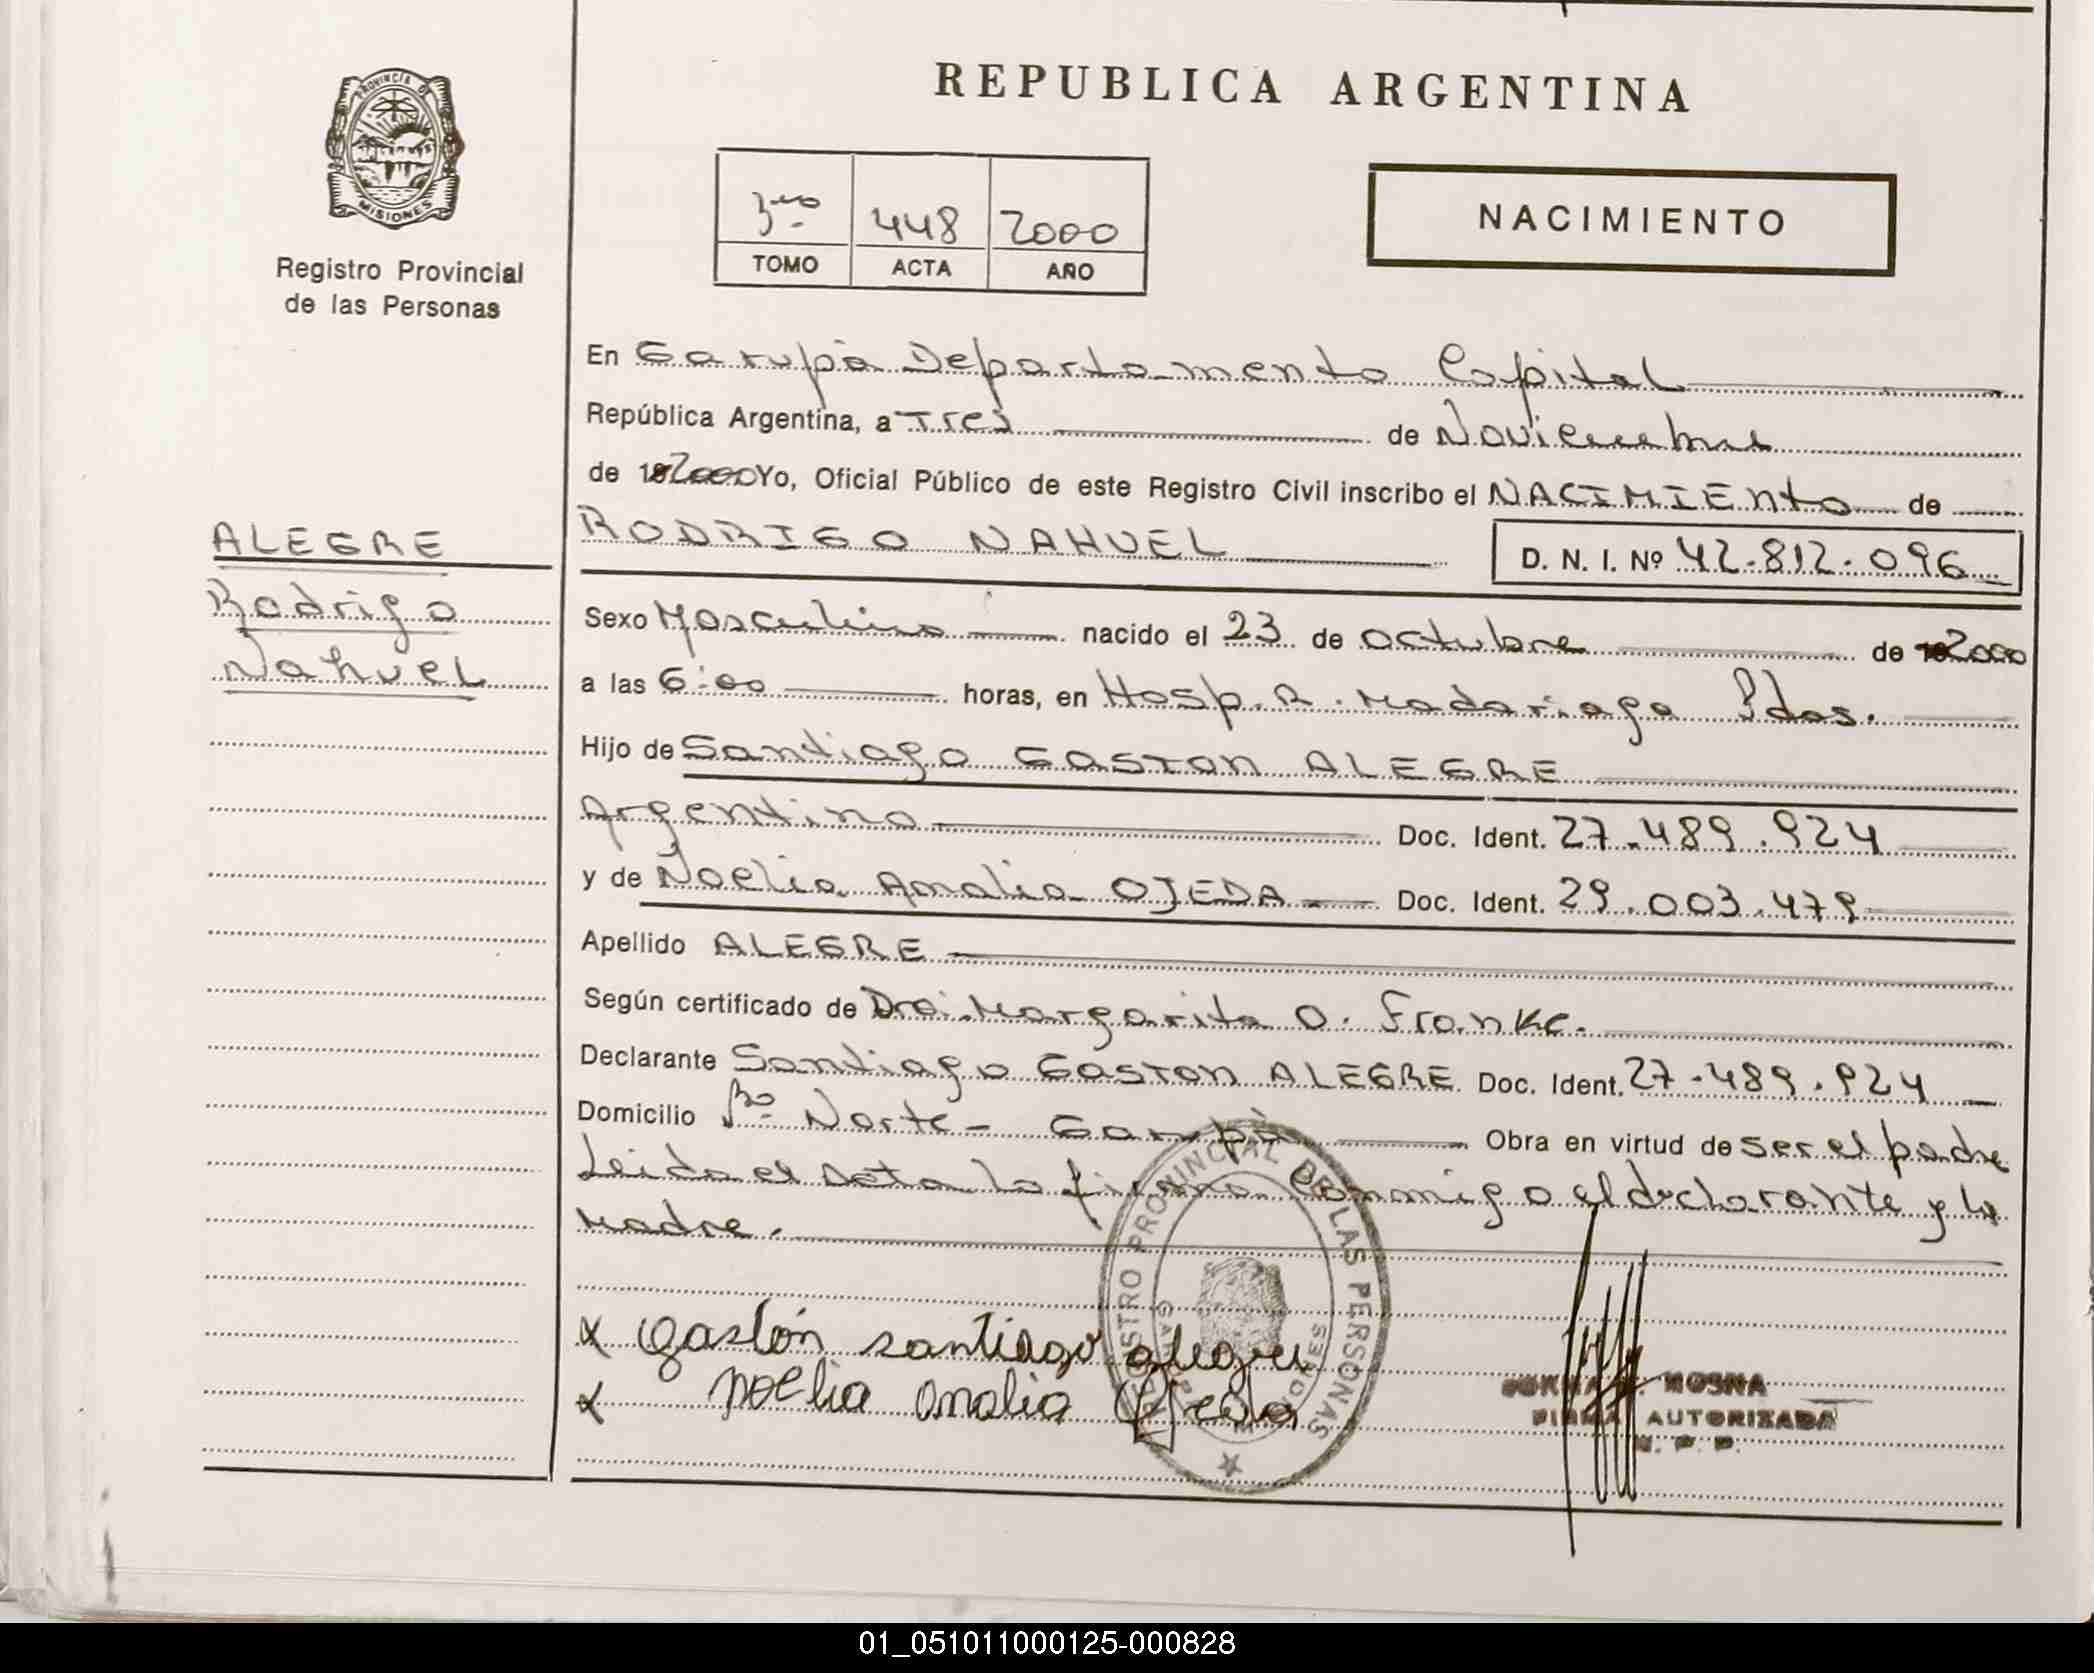 REPUBLICA ARGENTINA
PROVINCIA DE
MISIONES
Registro Provincial
de las Personas
3ro 448 2000
TOMO ACTA AÑO
NACIMIENTO
En Garupá Departamento Capital
República Argentina, a Tres de Noviembre
de 192000 Yo, Oficial Público de este Registro Civil inscribo el NACIMIENTO de
ALEGRE
Rodrigo
Nahuel
RODRIGO NAHUEL
D. N. I. Nº 42.812.096
Sexo Masculino nacido el 23 de octubre de 192000
a las 6:00 horas, en Hosp. R. Madariaga Pdas.
Hijo de Santiago GASTON ALEGRE
Argentino Doc. Ident. 27.489.924
y de Noelia Amalia OJEDA Doc. Ident. 29.003.479
Apellido ALEGRE
Según certificado de Dra. Margarita O. Franke.
Declarante Santiago GASTON ALEGRE Doc. Ident. 27.489.924
Domicilio Bo Norte - Garupá Obra en virtud de ser el padre
Leida el Acta la firma conmigo el declarante y la
Madre.
REGISTRO PROVINCIAL DE LAS PERSONAS
x gastón santiago alegre
x noelia analia Ojeda
MOSNA
FIRMA AUTORIZADA
R. P. P.
01_051011000125-000828